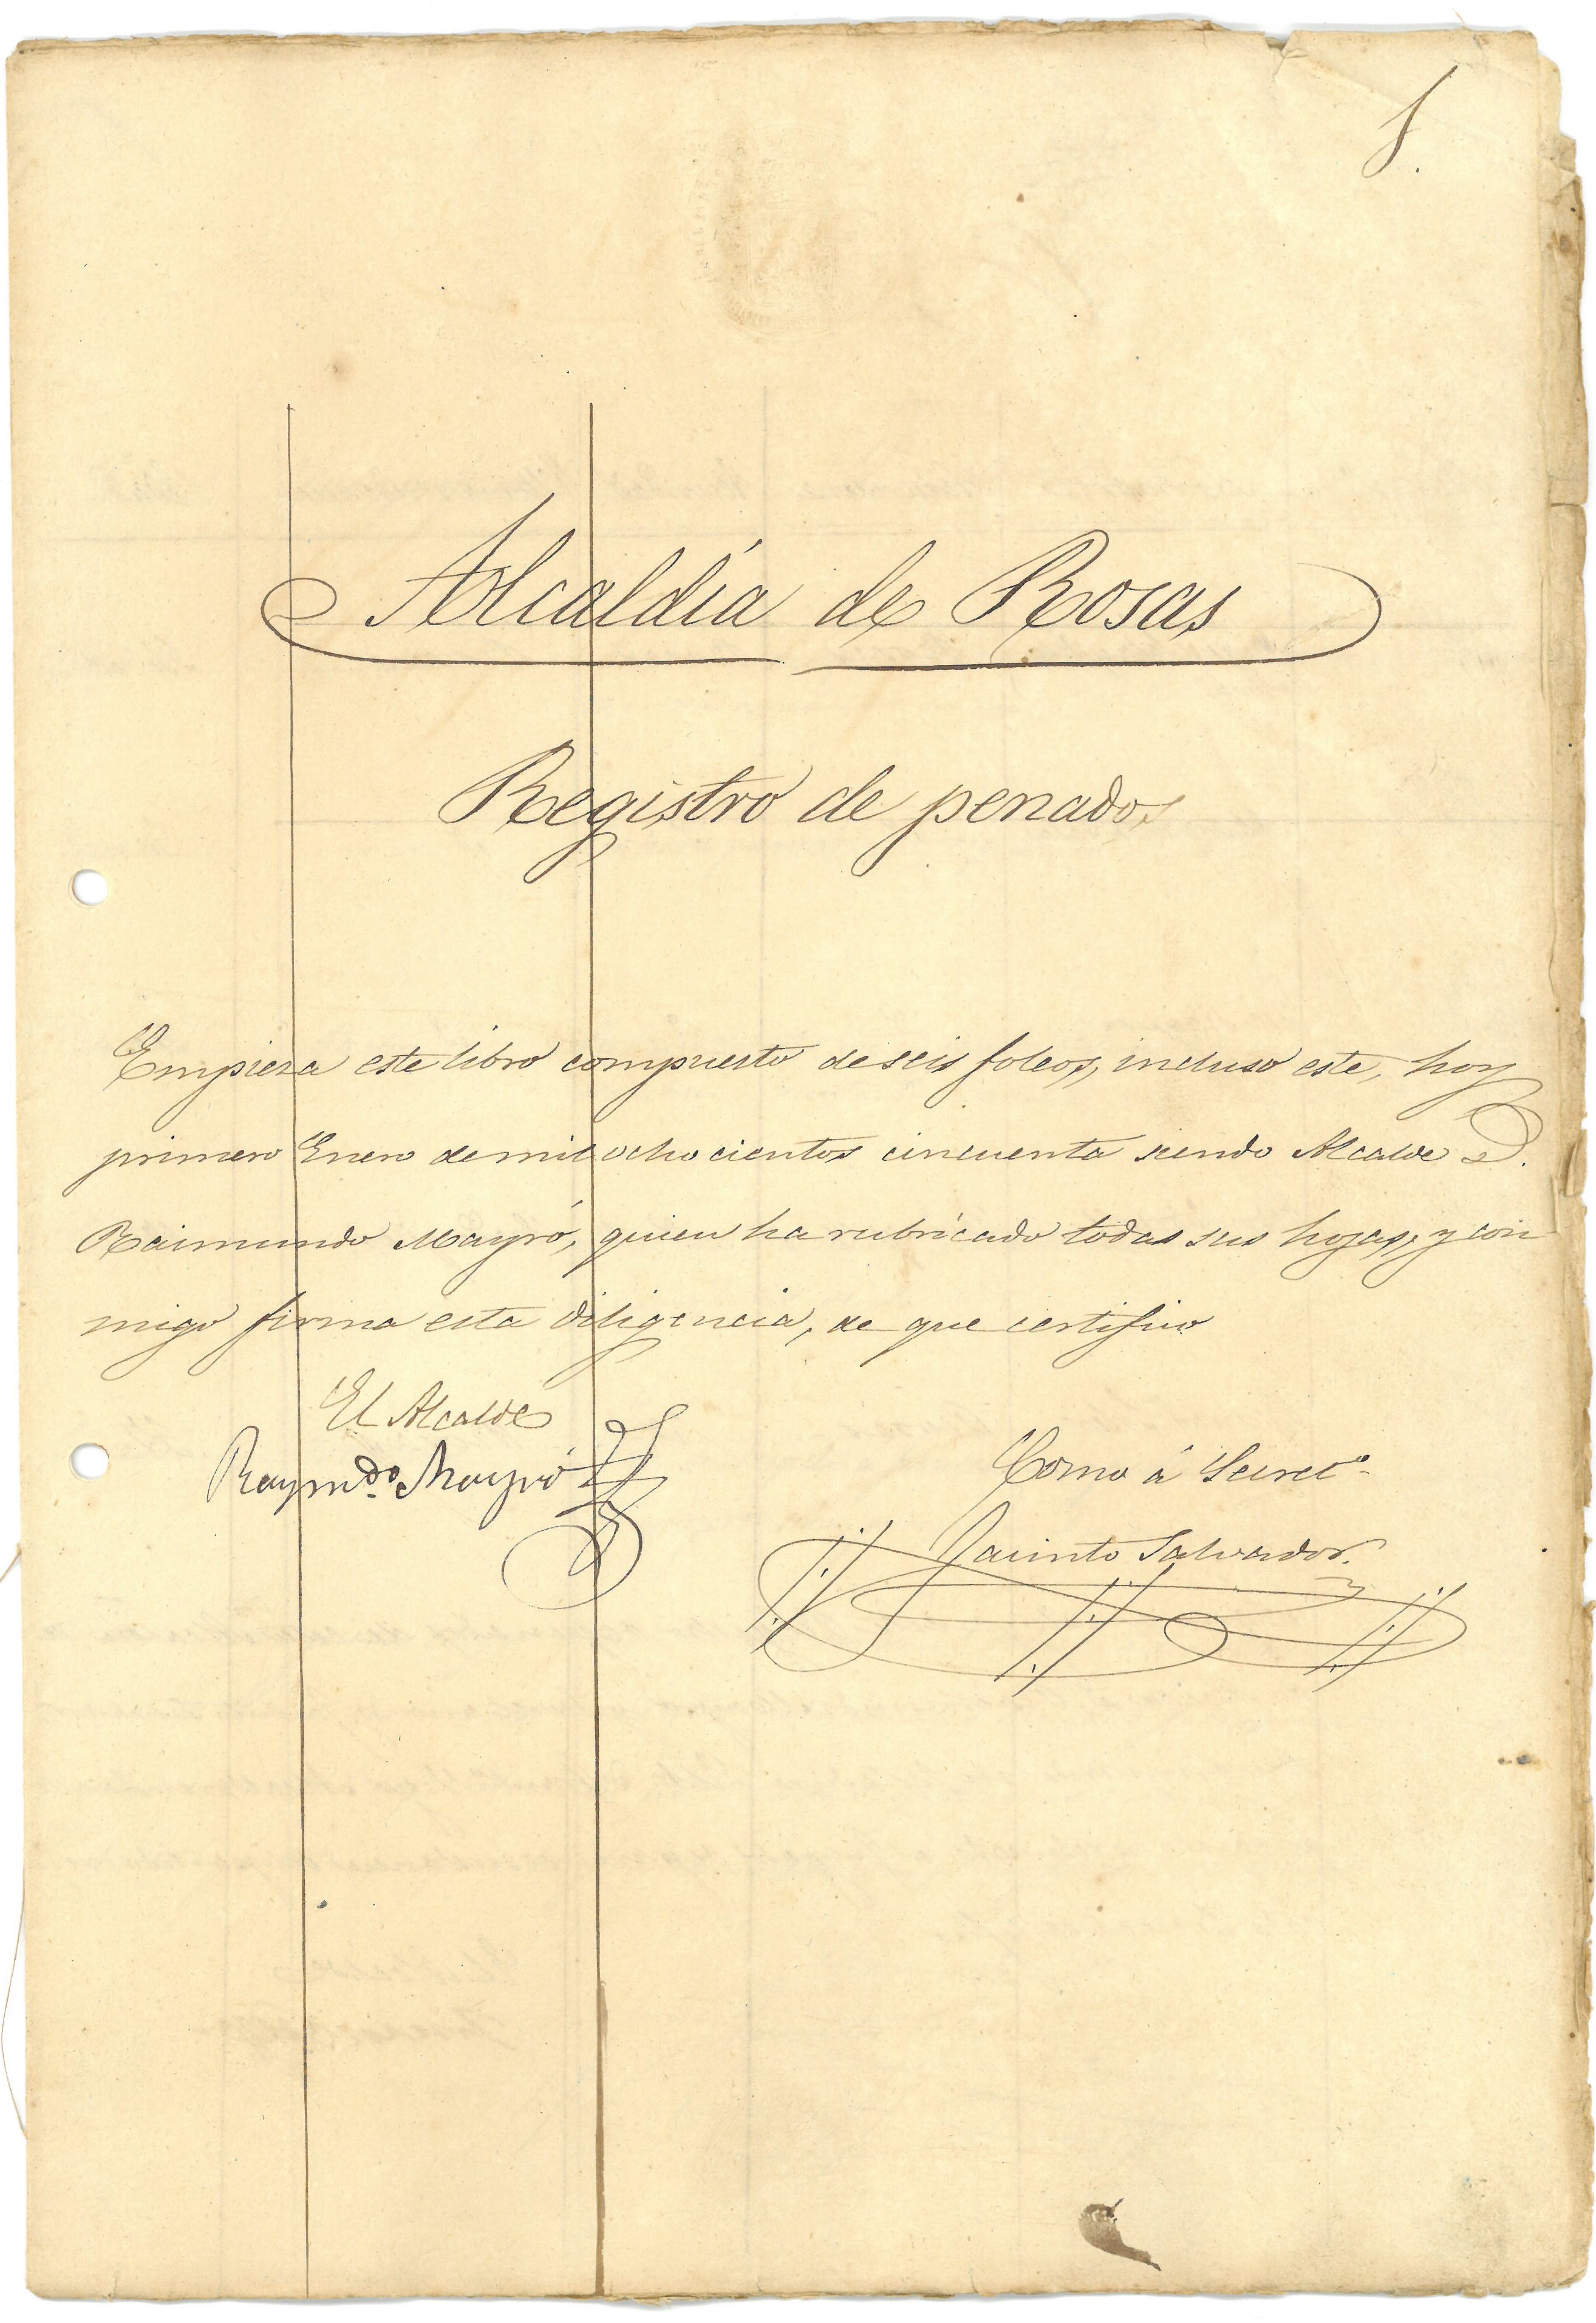 1.
Alcaldía de Rosas
Registro de penados
Empieza este libro compuesto de seis foleos, incluso este, hoy
primero Enero de mil ocho cientos cincuenta siendo Alcalde D.
Raimundo Mayró, quien ha rubricado todas sus hojas, y con
migo firma esta diligencia, de que certifico
El Alcalde
Raymdo. Mayró
Como á Secreto.
Jacinto Salvador.